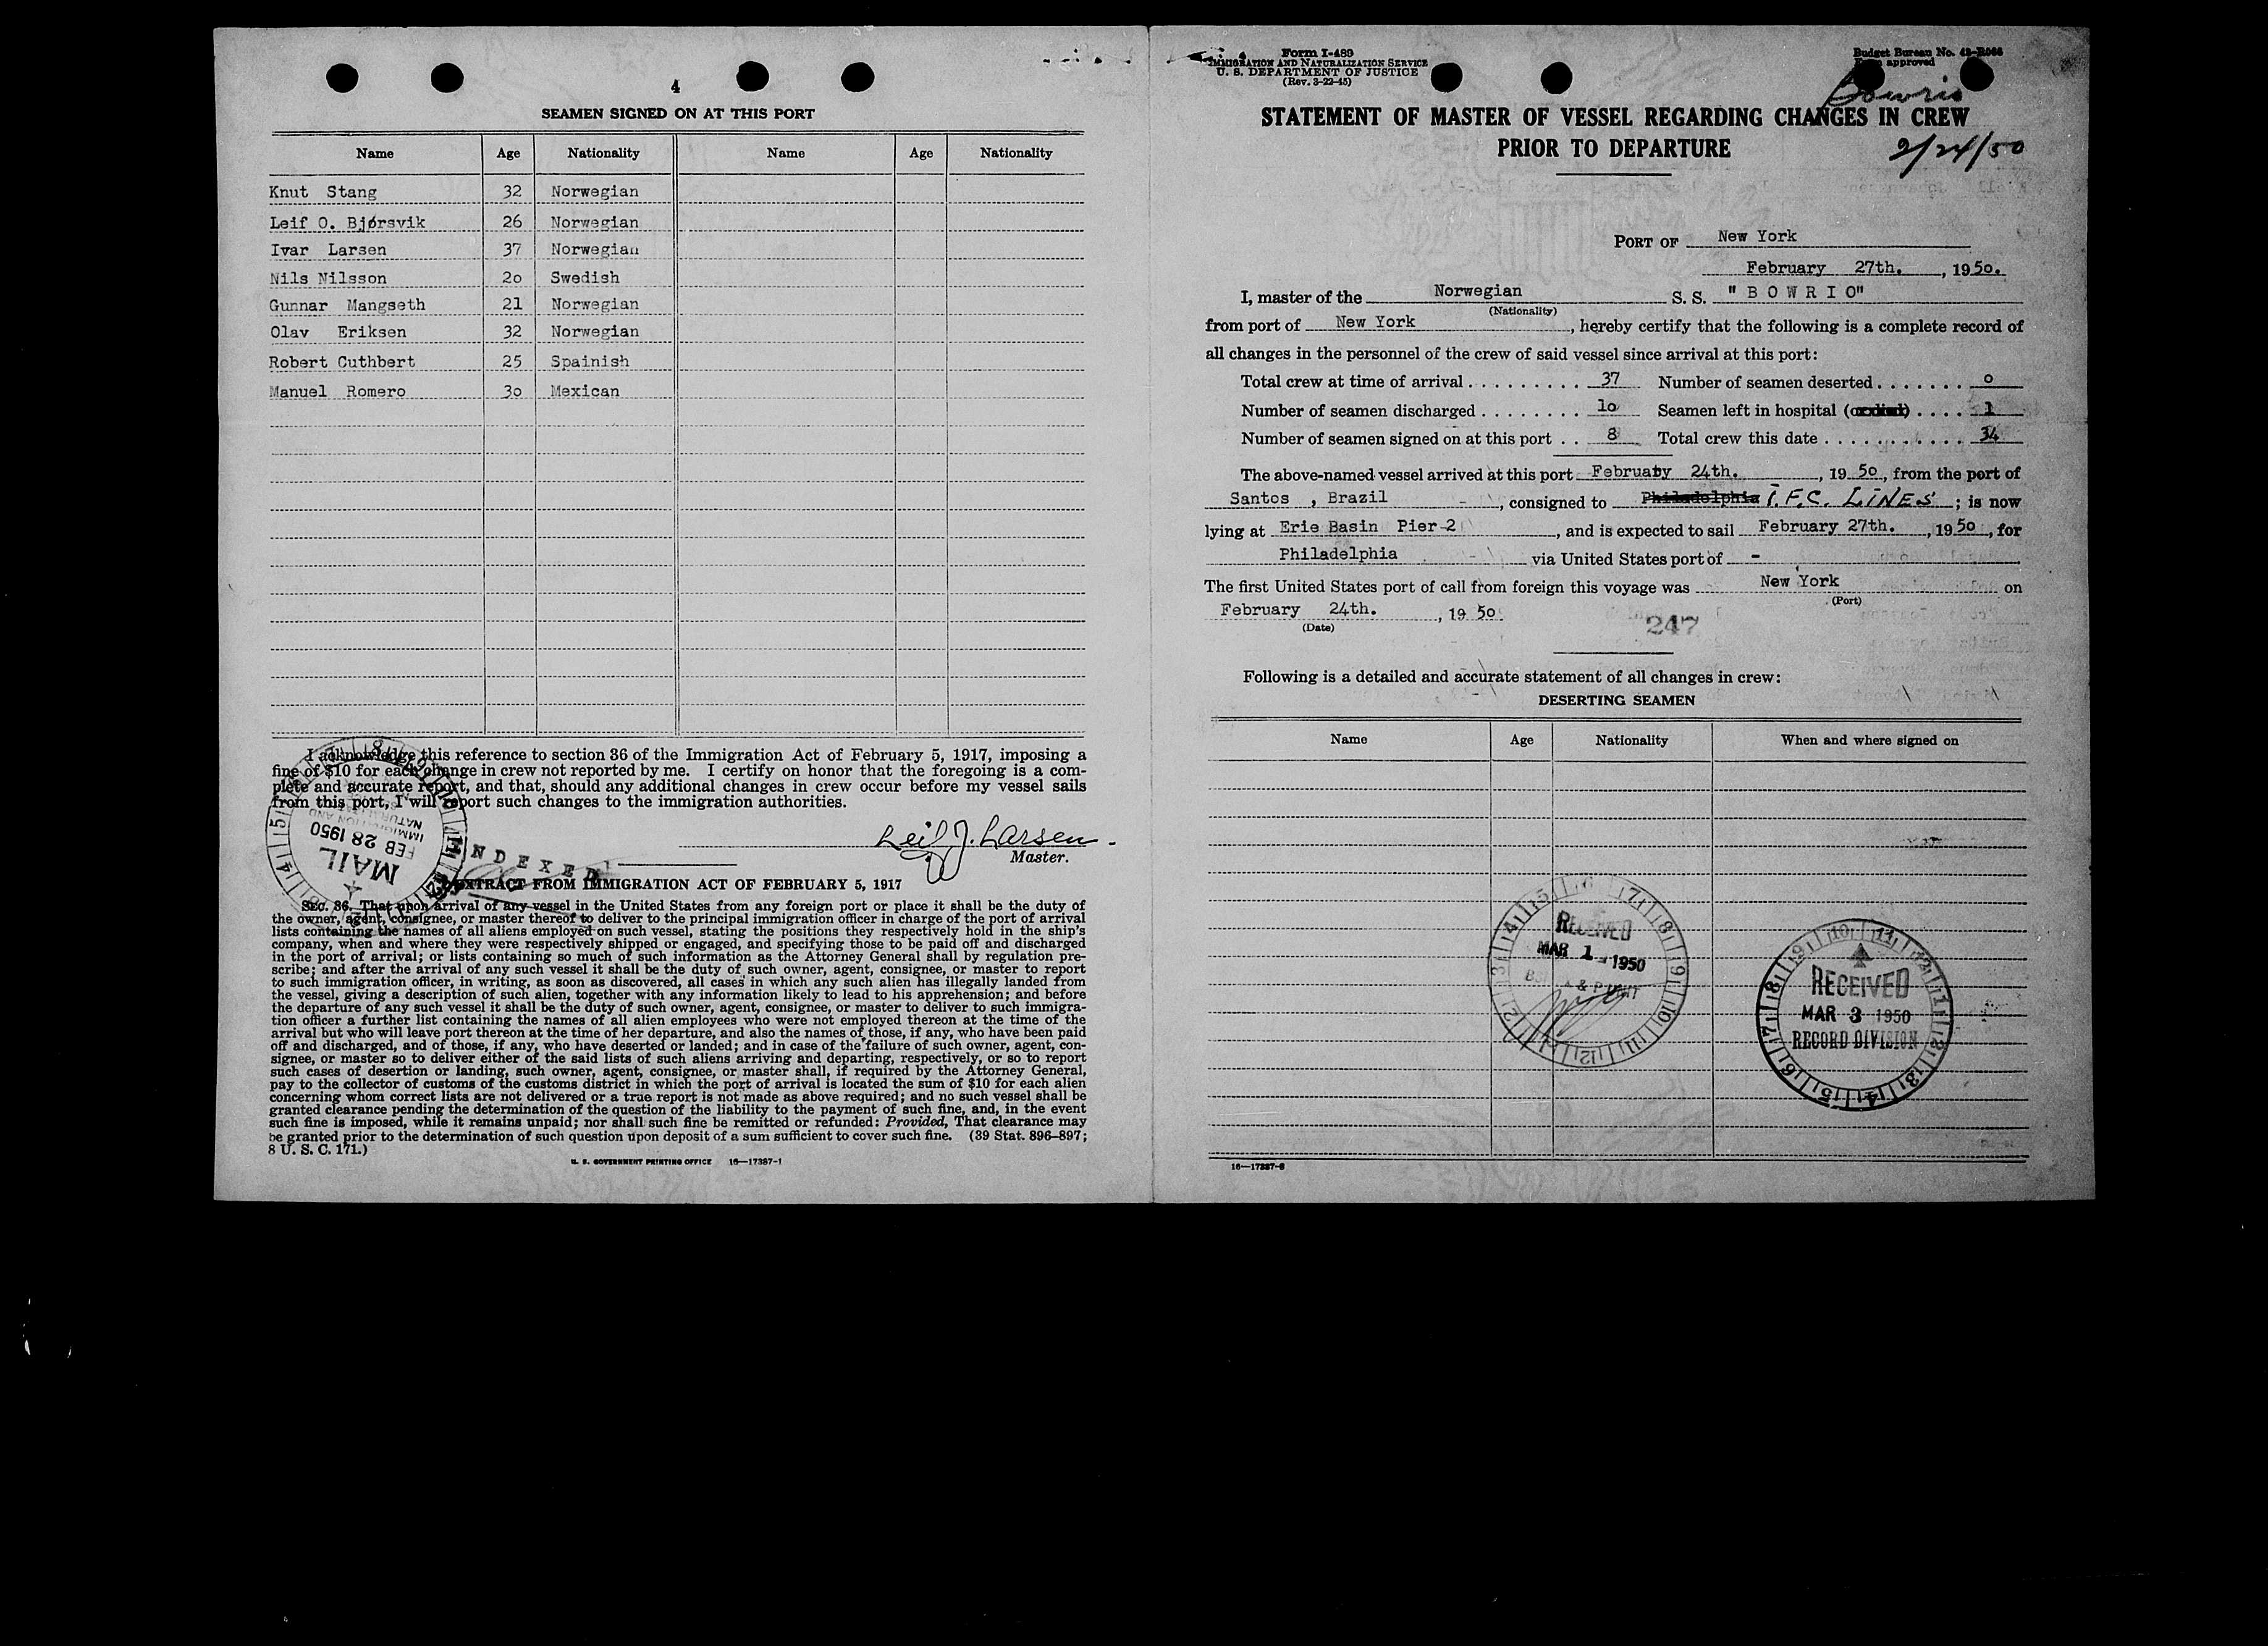 4
SEAMEN SIGNED ON AT THIS PORT
Name Age Nationality Name Age Nationality
Knut Stang 32 Norwegian
Leif O. Bjørsvik 26 Norwegian
Ivar Larsen 37 Norwegian
Nils Nilsson 2o Swedish
Gunnar Mangseth 21 Norwegian
Olav Eriksen 32 Norwegian
Robert Cuthbert 25 Spainish
Manuel Romero 3o Mexican
I acknowledge this reference to section 36 of the Immigration Act of February 5, 1917, imposing a
fine of $10 for each change in crew not reported by me. I certify on honor that the foregoing is a com-
plete and accurate report, and that, should any additional changes in crew occur before my vessel sails
from this port, I will report such changes to the immigration authorities.
MAIL
FEB 28 1950
IMMIGRATION AND
Leif J. Larsen
Master.
INDEXED
EXTRACT FROM IMMIGRATION ACT OF FEBRUARY 5, 1917
SEC. 36. That upon arrival of any vessel in the United States from any foreign port or place it shall be the duty of
the owner, agent, consignee, or master thereof to deliver to the principal immigration officer in charge of the port of arrival
lists containing the names of all aliens employed on such vessel, stating the positions they respectively hold in the ship's
company, when and where they were respectively shipped or engaged, and specifying those to be paid off and discharged
in the port of arrival; or lists containing so much of such information as the Attorney General shall by regulation pre-
scribe; and after the arrival of any such vessel it shall be the duty of such owner, agent, consignee, or master to report
to such immigration officer, in writing, as soon as discovered, all cases in which any such alien has illegally landed from
the vessel, giving a description of such alien, together with any information likely to lead to his apprehension; and before
the departure of any such vessel it shall be the duty of such owner, agent, consignee, or master to deliver to such immigra-
tion officer a further list containing the names of all alien employees who were not employed thereon at the time of the
arrival but who will leave port thereon at the time of her departure, and also the names of those, if any, who have been paid
off and discharged, and of those, if any, who have deserted or landed; and in case of the failure of such owner, agent, con-
signee, or master so to deliver either of the said lists of such aliens arriving and departing, respectively, or so to report
such cases of desertion or landing, such owner, agent, consignee, or master shall, if required by the Attorney General,
pay to the collector of customs of the customs district in which the port of arrival is located the sum of $10 for each alien
concerning whom correct lists are not delivered or a true report is not made as above required; and no such vessel shall be
granted clearance pending the determination of the question of the liability to the payment of such fine, and, in the event
such fine is imposed, while it remains unpaid; nor shall such fine be remitted or refunded: Provided, That clearance may
be granted prior to the determination of such question upon deposit of a sum sufficient to cover such fine. (39 Stat. 896-897;
8 U. S. C. 171.)
U. S. GOVERNMENT PRINTING OFFICE 16—17387-1
Form I-489
IMMIGRATION AND NATURALIZATION SERVICE
U. S. DEPARTMENT OF JUSTICE
(Rev. 3-22-45)
Budget Bureau No. 43-R066
approved
Bowrio
STATEMENT OF MASTER OF VESSEL REGARDING CHANGES IN CREW
PRIOR TO DEPARTURE
2/24/50
PORT OF New York
February 27th. , 1950.
I, master of the Norwegian S. S. " B O W R I O"
(Nationality)
from port of New York , hereby certify that the following is a complete record of
all changes in the personnel of the crew of said vessel since arrival at this port:
Total crew at time of arrival . . . . . . . . . 37 Number of seamen deserted . . . . . . . o
Number of seamen discharged . . . . . . . . 1o Seamen left in hospital (or died) . . . . 1
Number of seamen signed on at this port . . 8 Total crew this date . . . . . . . . . . . 34
The above-named vessel arrived at this port Februaty 24th. , 19 5o, from the port of
Santos , Brazil - , consigned to Philadelphia I.F.C. LINES ; is now
lying at Erie Basin Pier 2 , and is expected to sail February 27th. , 195o , for
Philadelphia - via United States port of -
The first United States port of call from foreign this voyage was New York on
(Port)
February 24th. , 19 5o.
(Date)
247
Following is a detailed and accurate statement of all changes in crew:
DESERTING SEAMEN
Name Age Nationality When and where signed on
RECEIVED
MAR 1 - 1950
RECEIVED
MAR 3 1950
RECORD DIVISION
16—17387-6